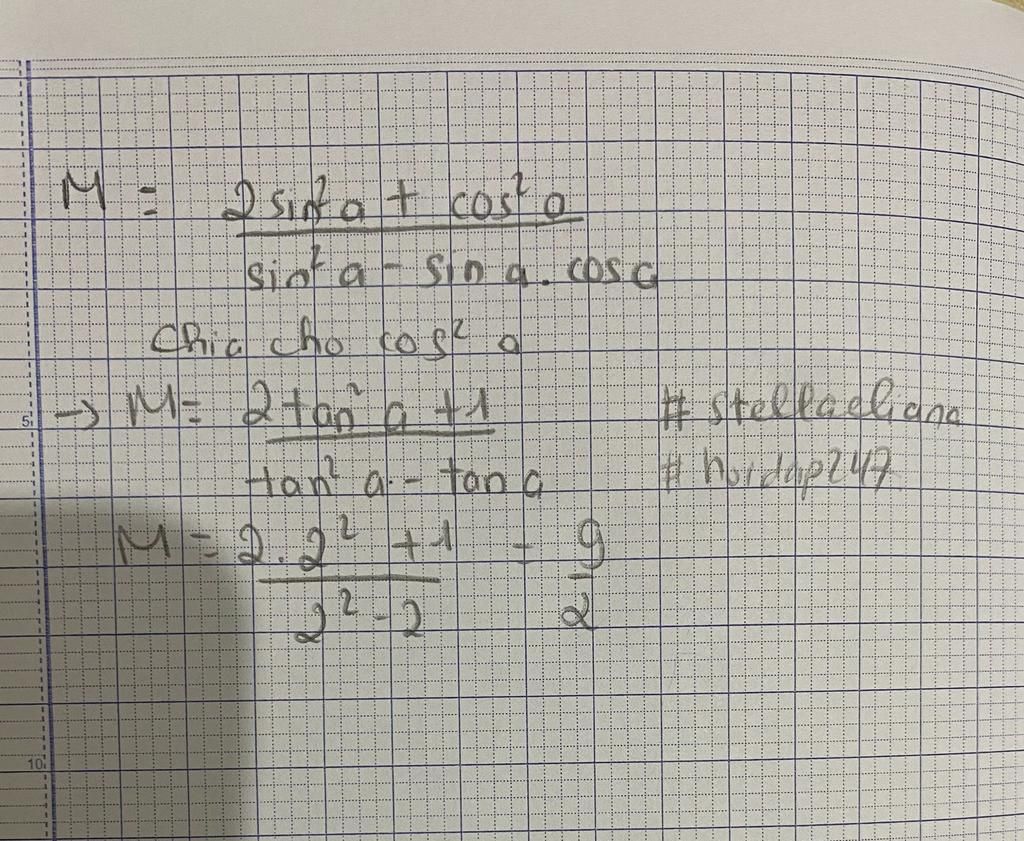 M = 2sin²a + cos²a / sin²a - sin a . cos a
Chia cho cos² a
5 → M = 2tan²a + 1 / tan²a - tan a
# stellaeliana
# hoidap247
M = 2.2² + 1 / 2² - 2 = 9/2
10